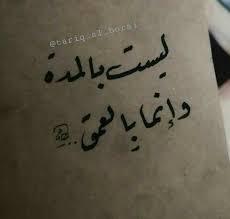 @tariq_al_borai
ليست بالمدة
وإنما بالعمق ..